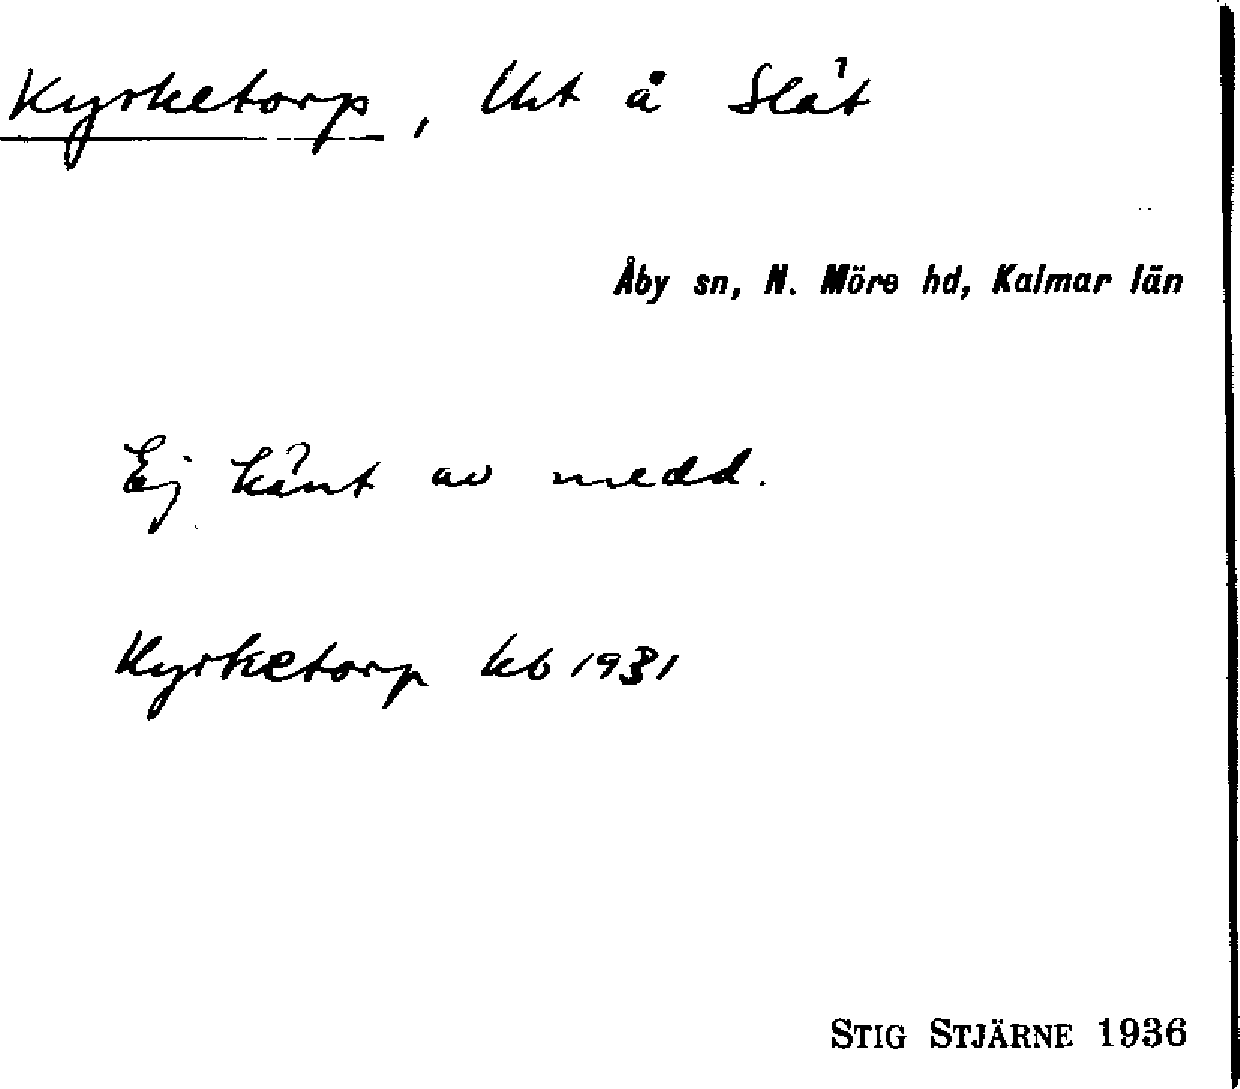 Kyrketorp, Lht å Slät
Åby sn, N. Möre hd, Kalmar län
Ej känt av medd.
Kyrketorp kb 1931
STIG STJÄRNE 1936